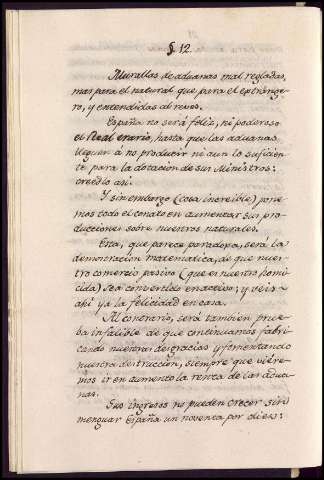 § 12.
Murallas de aduanas mal regladas,
mas para el natural que para el extrange-
ro, y entendidas al reves.
España no será feliz, ni poderoso
el Real erario, hasta que las aduanas
lleguen á no producir ni aun lo suficien-
te para la dotacion de sus Ministros:
creedlo asi.
Y sin embargo (cosa increible) pone-
mos todo el conato en aumentar sus pro-
ducciones sobre nuestros naturales.
Esta, que parece paradoxa, será la
demonstracion matematica, de que nues-
tro comercio pasivo (que es nuestro homi-
cida) sea convertido en activo; y veis
ahi ya la felicidad en casa.
Al contrario, será tambien prue-
ba infalible de que continuamos fabri-
cando nuestras desgracias y fomentando
nuestra destruccion, siempre que viére-
mos ir en aumento la renta de las adua-
nas.
Sus ingresos no pueden crecer sin
menguar España un noventa por diez: